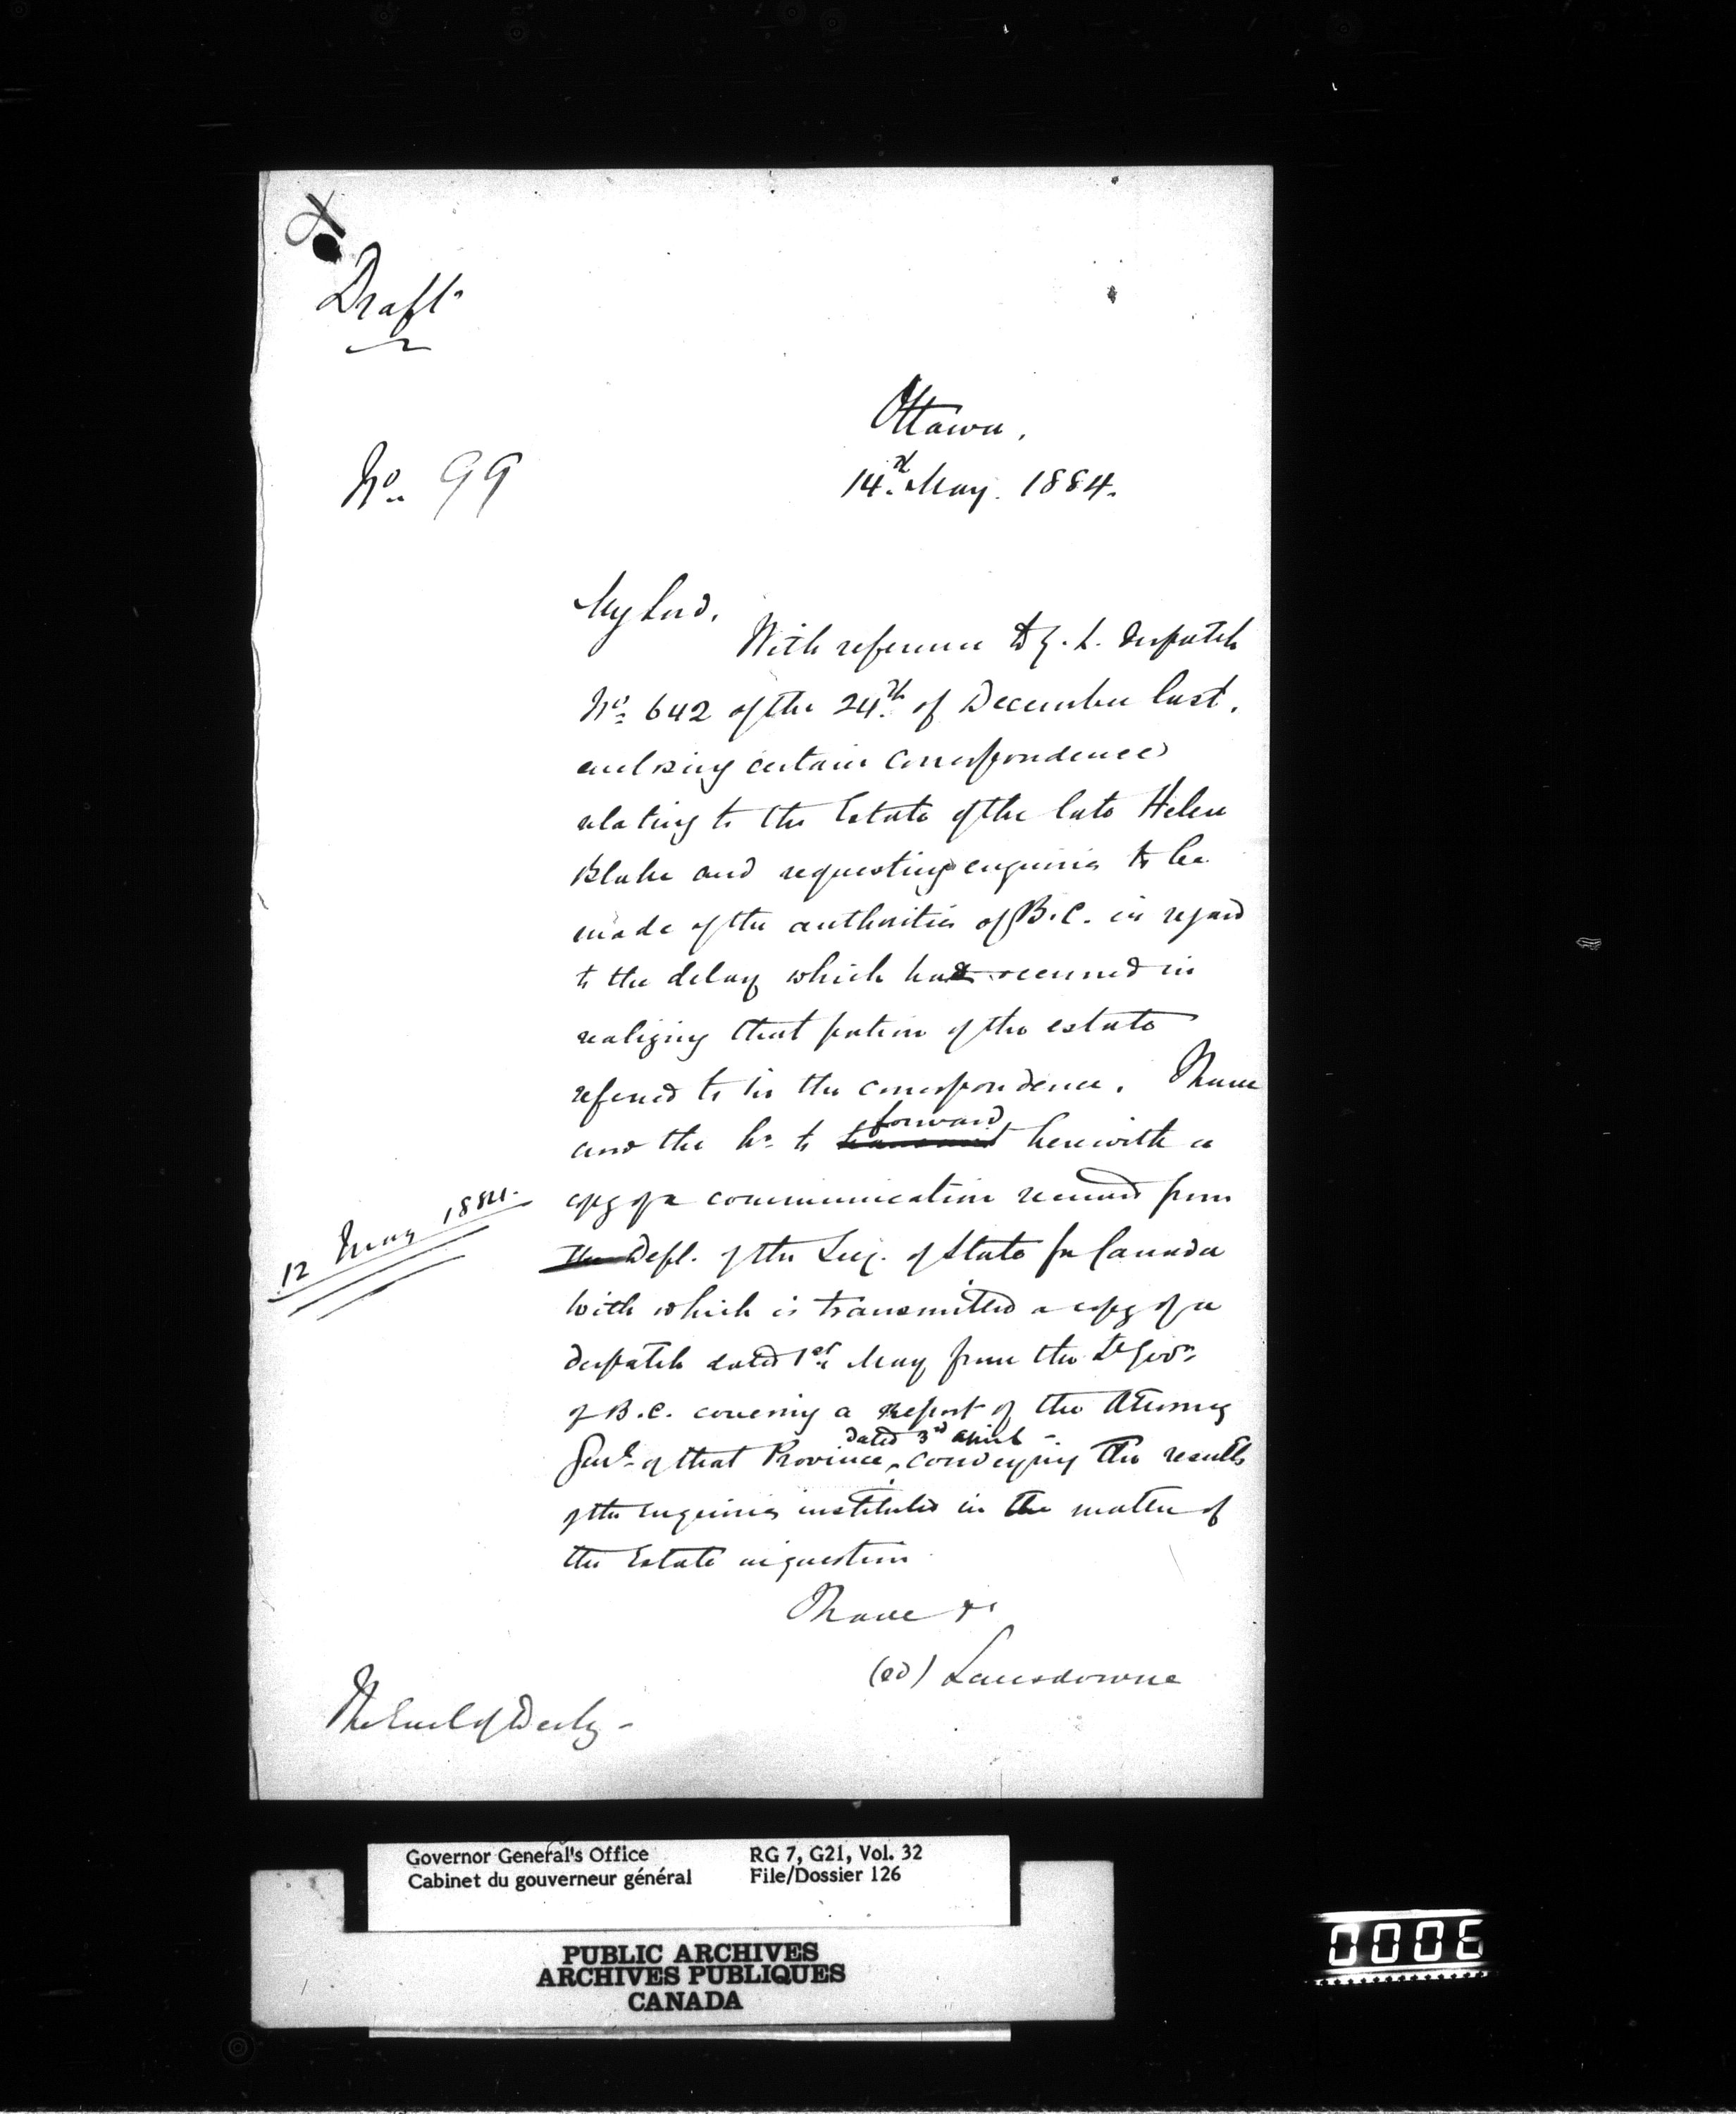 Draft
Ottawa,
No. 99
14th May. 1884.
My Lord,
With reference to Y. L. despatch
No. 642 of the 24th of December last,
enclosing certain correspondence
relating to the Estate of the late Helen
Blake and requesting enquiries to be
made of the authorities of B.C. in regard
to the delay which had occurred in
realizing that portion of the estate
referred to in the correspondence, I have
forward
and the hr. to transmit herewith a
copy of a communication received from
12 May 1884.
the Dept. of the Secy. of State for Canada
with which is transmitted a copy of a
despatch dated 1st May from the Lt Govr.
of B.C. covering a Report of the Attorney
dated 3rd April
Genl. of that Province, conveying the results
of the enquiries instituted in the matter of
the Estate in question
I have &c
(sd) Lansdowne
The Earl of Derby -
Governor General's Office RG 7, G21, Vol. 32
Cabinet du gouverneur général File/Dossier 126
PUBLIC ARCHIVES
ARCHIVES PUBLIQUES
CANADA
0006